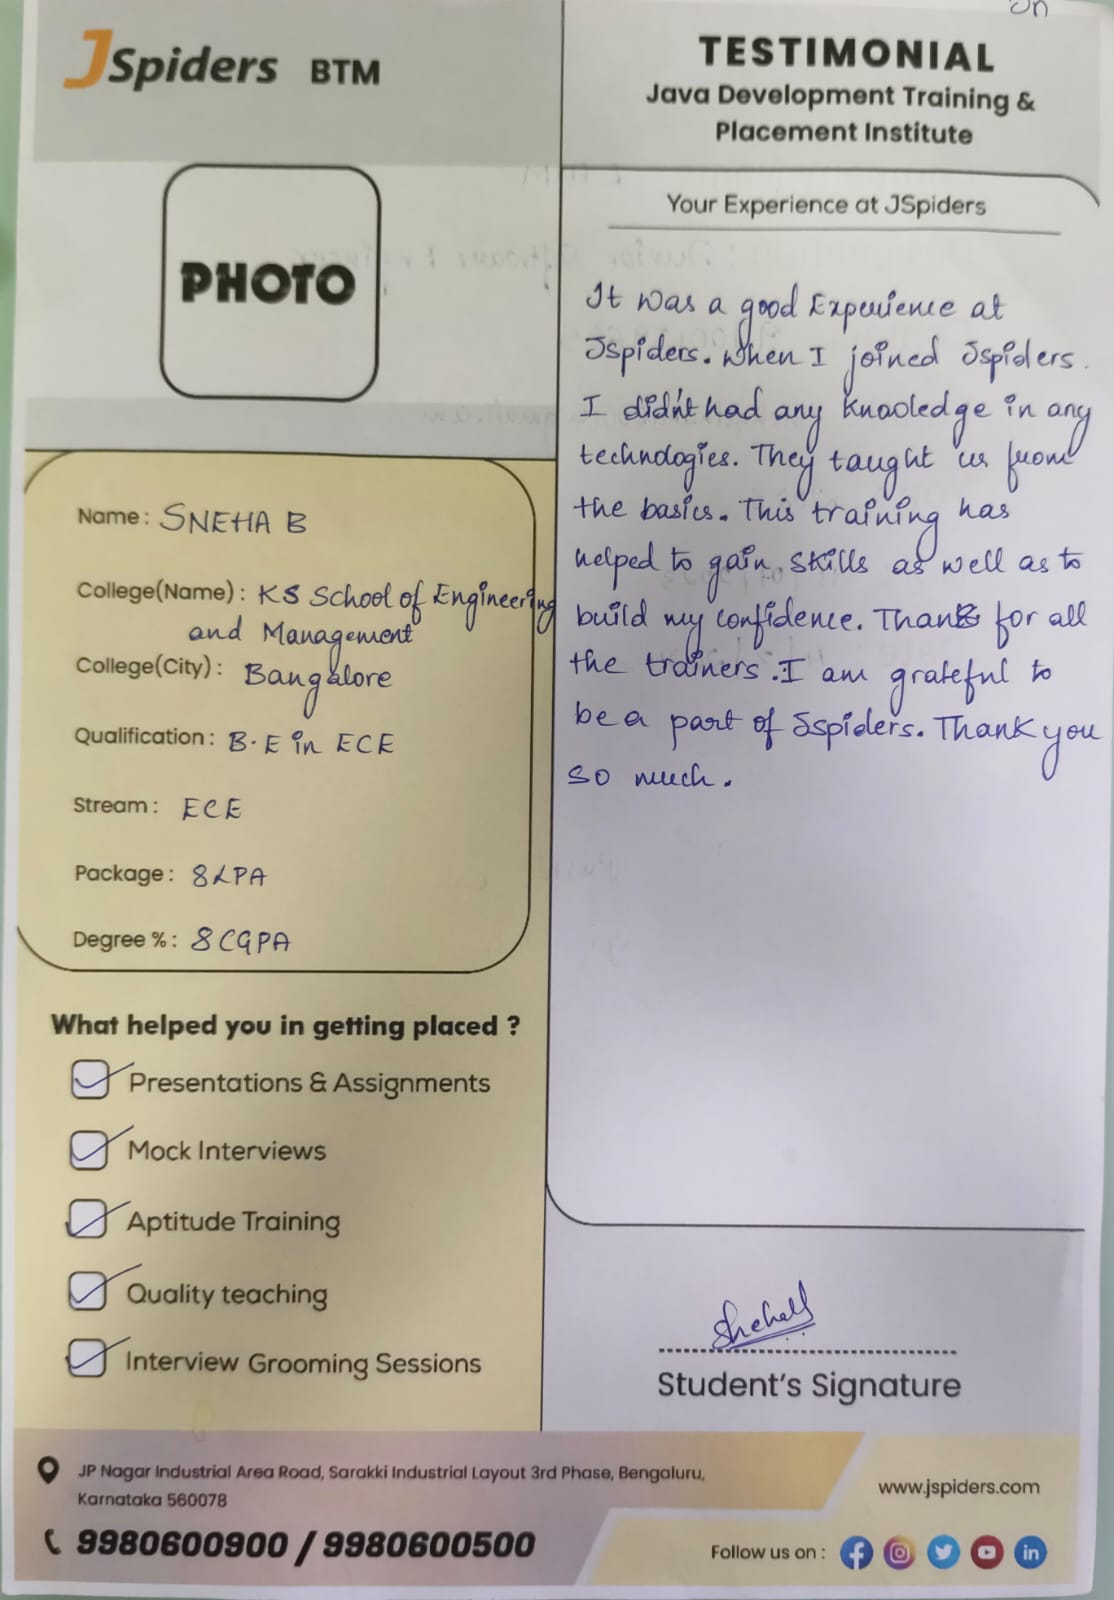 JSpiders BTM
PHOTO
Name : SNEHA B
College(Name) : KS School of Engineering
and Management
College(City) : Bangalore
Qualification : B.E in ECE
Stream : ECE
Package : 8LPA
Degree % : 8CGPA
What helped you in getting placed ?
Presentations & Assignments
Mock Interviews
Aptitude Training
Quality teaching
Interview Grooming Sessions
TESTIMONIAL
Java Development Training &
Placement Institute
Your Experience at JSpiders
It was a good Experience at
Jspiders. When I joined Jspiders.
I didn't had any knaoledge in any
technologies. They taught us from
the basics. This training has
helped to gain skills as well as to
build my confidence. Thanks for all
the trainers. I am grateful to
be a part of Jspiders. Thank you
so much.
Student's Signature
JP Nagar Industrial Area Road, Sarakki Industrial Layout 3rd Phase, Bengaluru,
Karnataka 560078
9980600900 / 9980600500
www.jspiders.com
Follow us on :